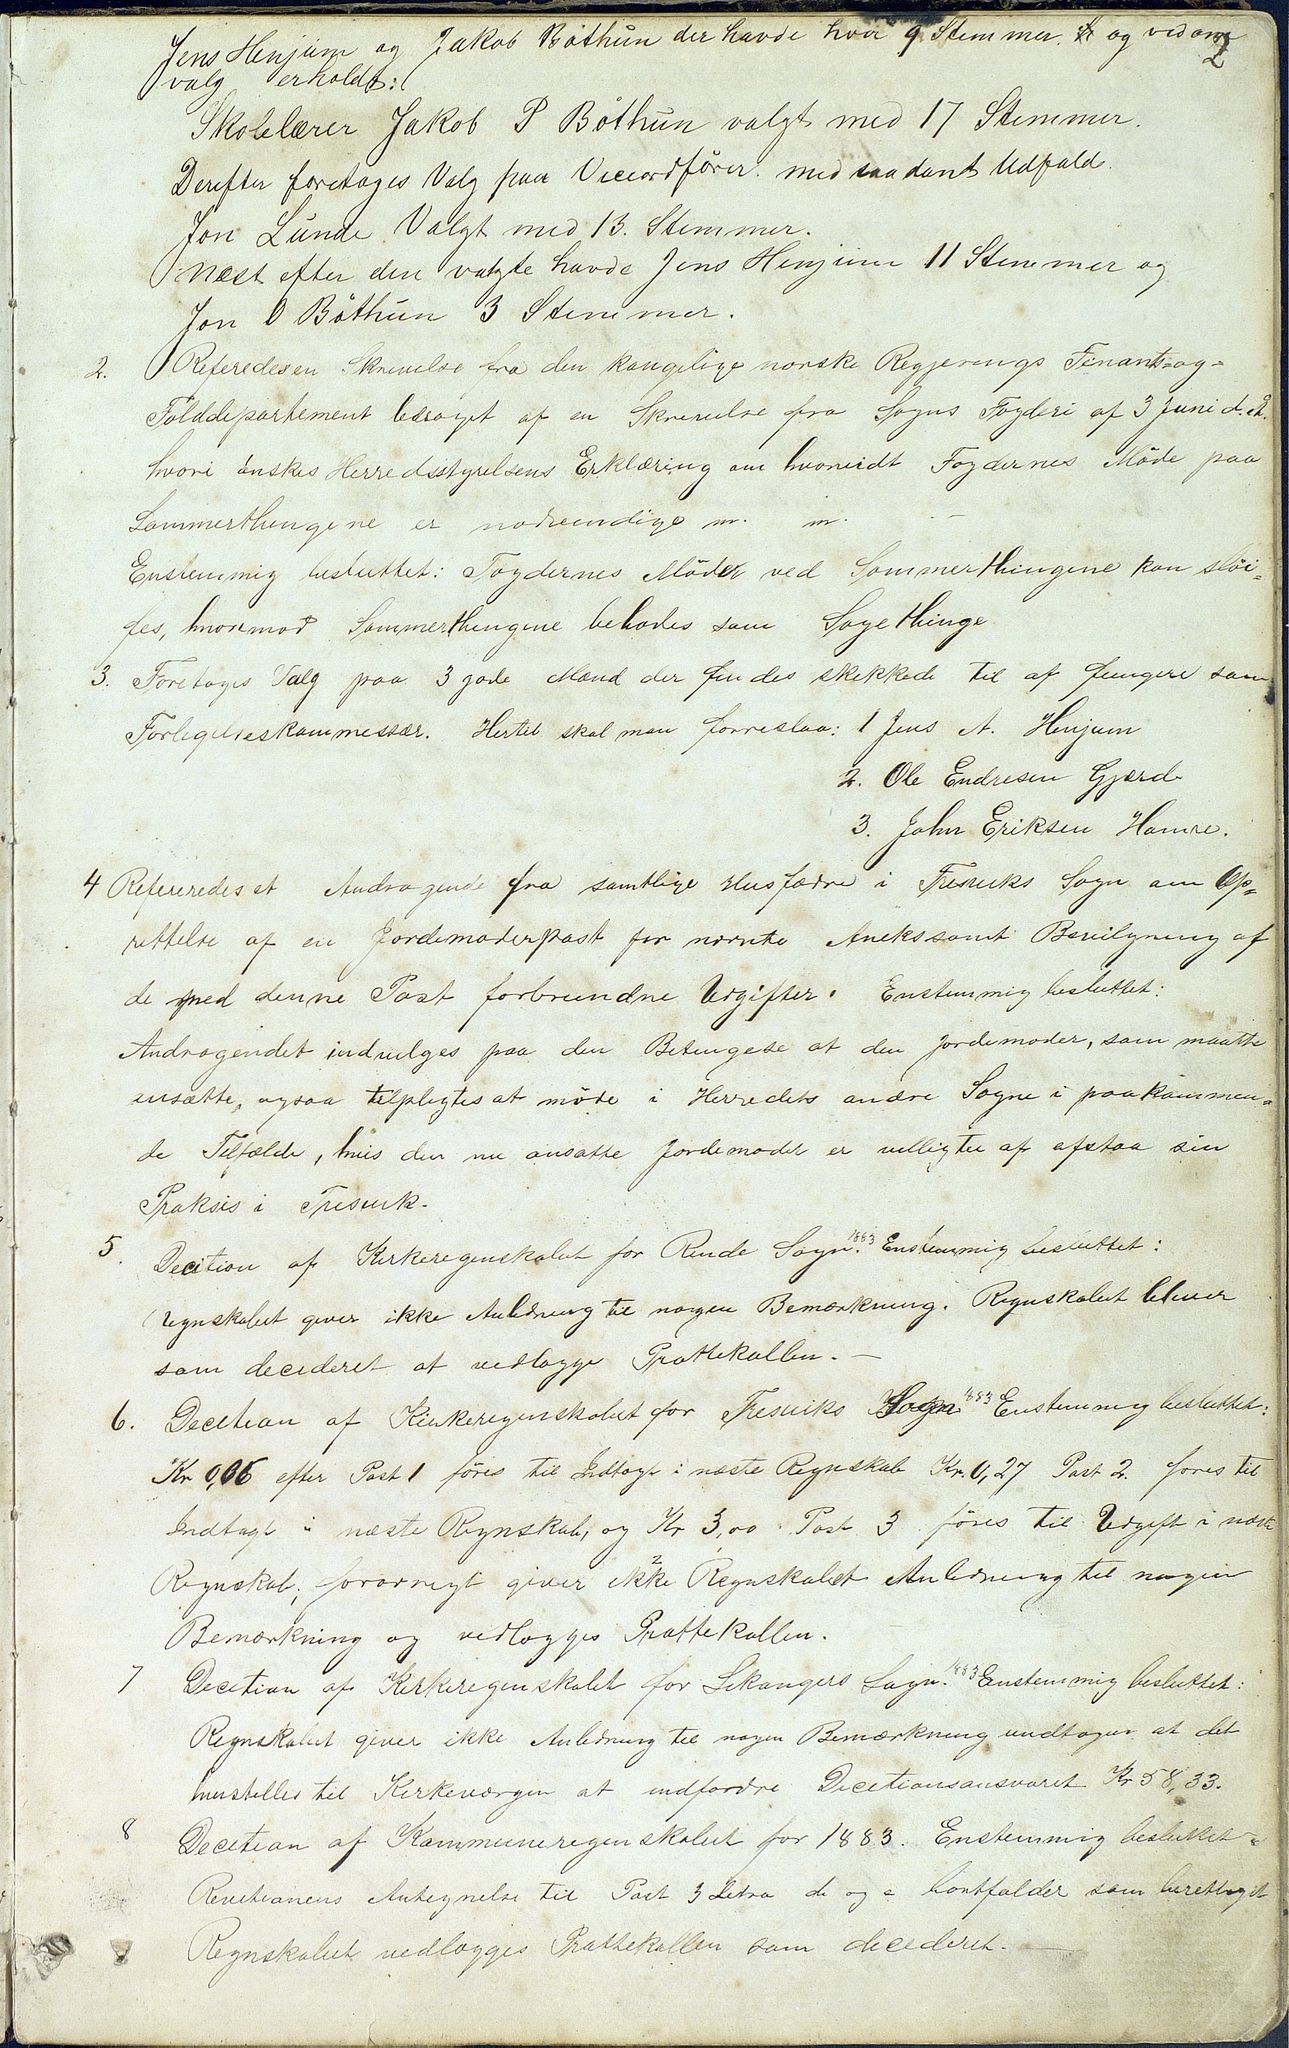 2
Jens Henjum og Jakob Bøthun der havde hver 9 Stemmer. og ved om-
valg erholdt:
Skolelærer Jakob P Bøthun valgt med 17 Stemmer.
Derefter foretoges Valg paa Viceordfører. med saadant Udfald.
Jon Lunde Valgt med 13. Stemmer.
Næst efter den valgte havde Jens Henjum 11 Stemmer og
Jon O Bøthun 3 Stemmer.
2. Referedes en Skrivelse fra den kongelige norske Regjerings Finants-og-
Tolddepartement ledsaget af en Skrivelse fra Sogns Fogderi af 3 Juni d. A.
hvori ønskes Herredsstyrelsens Erklæring om hvorvidt Fogdernes Møde paa
Sommerthingene er nødvendige m. m. -
Enstemmig besluttet: Fogdernes Møder ved Sommerthingene kan sløi-
fes, hvorimod Sommerthingene beholdes som Sagething
3. Foretoges Valg paa 3 gode Mænd der findes skikkede til at fungere som
Forligelseskommissær. Hertil skal man forreslaa: 1 Jens A. Henjum
2. Ole Endresen Gjærde
3. John Eriksen Hamre.
4 Refereredes et Andragende fra samtlige Husfædre i Fresviks Sogn om Op-
rettelse af en Jordemoderpost for nævnte Aneks samt Bevilgning af
de med denne Post forbundne Udgifter. Enstemmig besluttet:
Andragendet indvilges paa den Betingelse at den Jordemoder, som maatte
ansætte, ogsaa tilpligtes at møde i Herredets andre Sogne i paakommen-
de Tilfælde, hvis den nu ansatte Jordemoder er villig til at afstaa sin
Praksis i Fresvik.
5. Decition af Kirkeregnskabet for Rinde Sogn. 1883 Enstemmig besluttet:
Regnskabet giver ikke Anledning til nogen Bemærkning. Regnskabet bliver
som decideret at vedlægge Prottekollen. -
6. Decition af Kirkeregnskabet for Fresviks Sogn 1883 Enstemmig besluttet:
Kr 0,06 efter Post 1 føres til Indtægt i næste Regnskab Kr. 0,27 Post 2. føres til
Indtægt i næste Regnskab, og Kr 3,00 Post 3 føres til Udgift i næste
Regnskab; forøvrigt giver ikke Regnskabet Anledning til nogen
Bemærkning og vedlægges Prottekollen.
7 Decition af Kirkeregnskabet for Leikangers Sogn. 1883 Enstemmig besluttet:
Regnskabet giver ikke Anledning til nogen Bemærkning undtagen at det
henstilles til Kirkeværgen at indfordre Decitionsansvaret Kr 58,33.
8 Decition af Kommuneregnskabet for 1883. Enstemmig besluttet
Revitionens Antegnelse til Post 3 Litra d og e bortfalder som berettiget
Regnskabet vedlægges Prottekollen som decideret. -